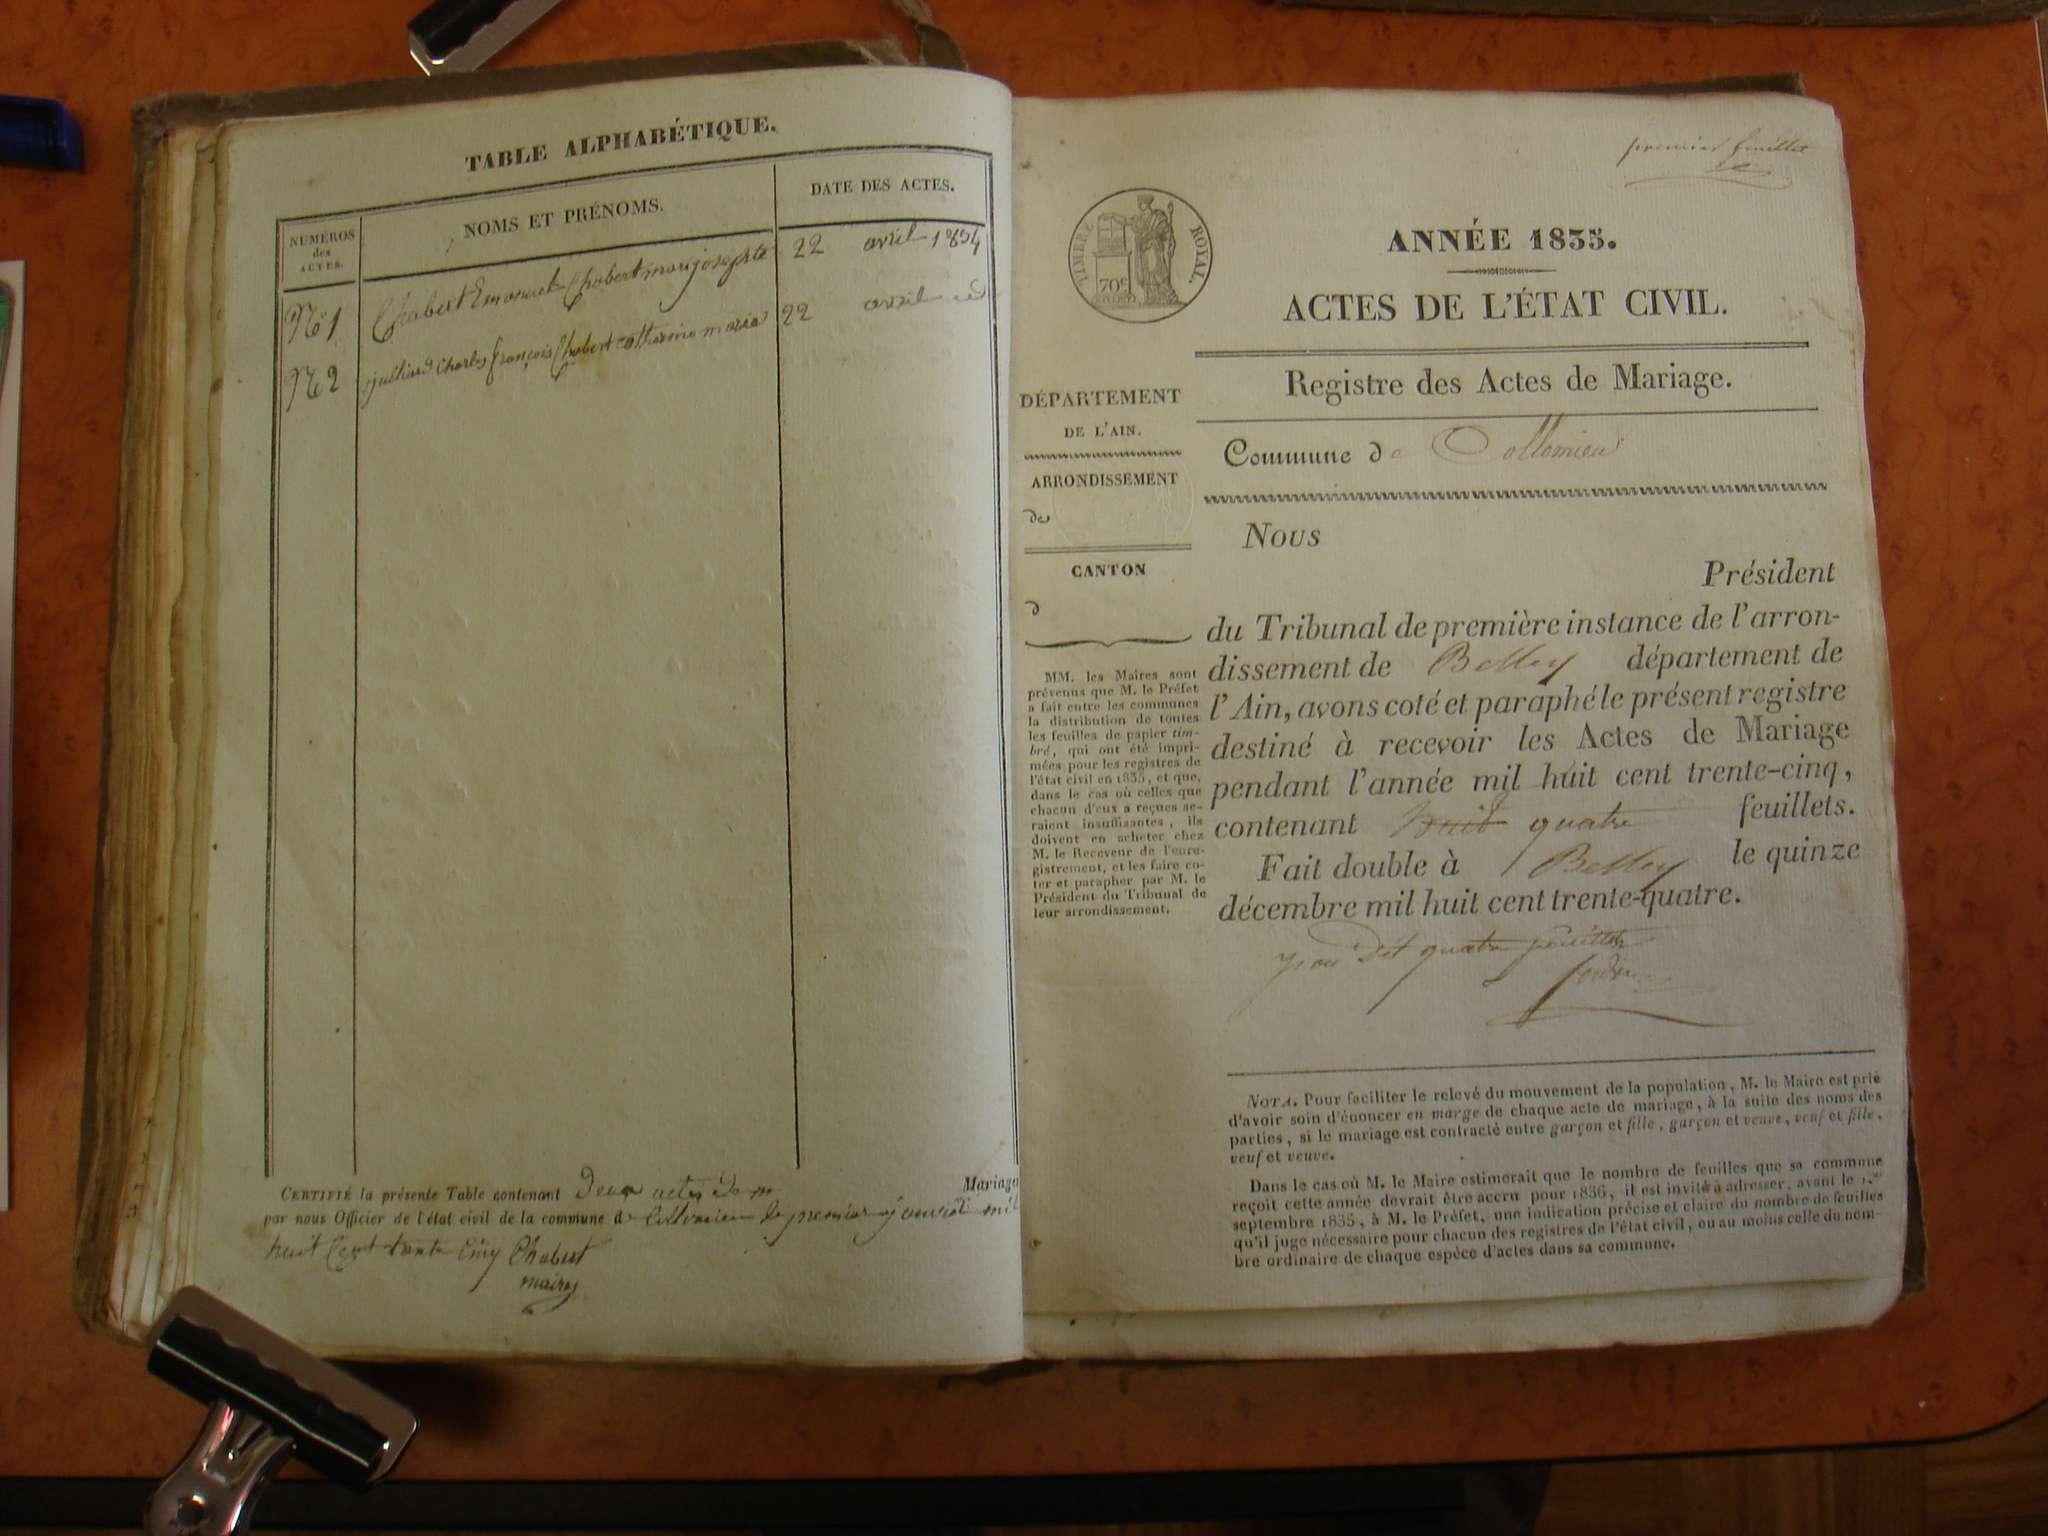 TABLE ALPHABÉTIQUE.
NUMÉROS
des
ACTES.
NOMS ET PRÉNOMS.
DATE DES ACTES.
No 1 Chabert Emanuel Chabert mari josephte 22 avril 1834
No 2 julliard Charles françois Chabert catherine maria 22 avril id
CERTIFIÉ la présente Table contenant Deux actes de m Mariage
par nous Officier de l'état civil de la commune de Collomieu le premier janvier mil
huit cent trente cinq Chabert
maire
premier feuillet
TIMBRE ROYAL.
70c
ANNÉE 1835.
ACTES DE L'ÉTAT CIVIL.
Registre des Actes de Mariage.
Commune de Collomieu
DÉPARTEMENT
DE L'AIN.
ARRONDISSEMENT
de
CANTON
d
MM. les Maires sont
prévenus que M. le Préfet
a fait entre les communes
la distribution de toutes
les feuilles de papier tim-
bré, qui ont été impri-
mées pour les registres de
l'état civil en 1835, et que,
dans le cas où celles que
chacun d'eux a reçues se-
raient insuffisantes, ils
doivent en acheter chez
M. le Receveur de l'enre-
gistrement, et les faire co-
ter et parapher par M. le
Président du Tribunal de
leur arrondissement.
Nous
Président
du Tribunal de première instance de l'arron-
dissement de Belley département de
l'Ain, avons coté et paraphé le présent registre
destiné à recevoir les Actes de Mariage
pendant l'année mil huit cent trente-cinq,
contenant huit quatre feuillets.
Fait double à Belley le quinze
décembre mil huit cent trente-quatre.
quatre feuillets
NOTA. Pour faciliter le relevé du mouvement de la population, M. le Maire est prié
d'avoir soin d'énoncer en marge de chaque acte de mariage, à la suite des noms des
parties, si le mariage est contracté entre garçon et fille, garçon et veuve, veuf et fille,
veuf et veuve.
Dans le cas où M. le Maire estimerait que le nombre de feuilles que sa commune
reçoit cette année devrait être accru pour 1836, il est invité à adresser, avant le 1.er
septembre 1835, à M. le Préfet, une indication précise et claire du nombre de feuilles
qu'il juge nécessaire pour chacun des registres de l'état civil, ou au moins celle du nom-
bre ordinaire de chaque espèce d'actes dans sa commune.